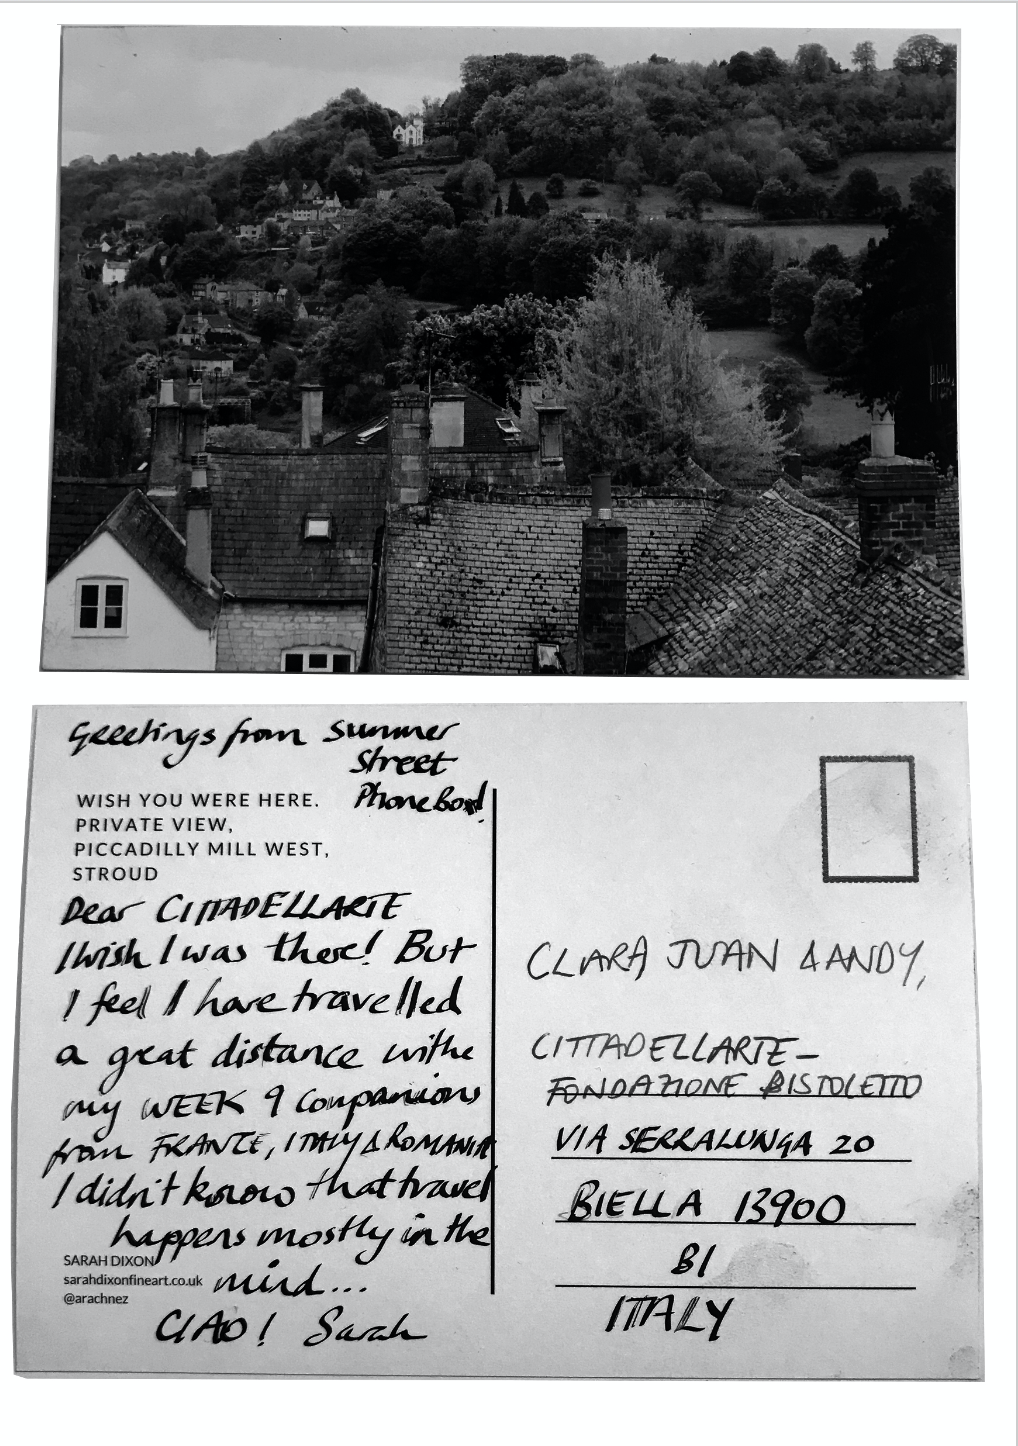 Greetings from Summer
Street
Phone Box!
WISH YOU WERE HERE.
PRIVATE VIEW,
PICCADILLY MILL WEST,
STROUD
Dear CITTADELLARTE
I wish I was there! But
I feel I have travelled
a great distance withe
my WEEK 9 Companions
from FRANCE, ITALY & ROMANIA
I didn't know that travel
happens mostly in the
mind...
CIAO! Sarah
SARAH DIXON
sarahdixonfineart.co.uk
@arachnez
CLARA JUAN & ANDY,
CITTADELLARTE –
FONDAZIONE PISTOLETTO
VIA SERRALUNGA 20
BIELLA 13900
BI
ITALY